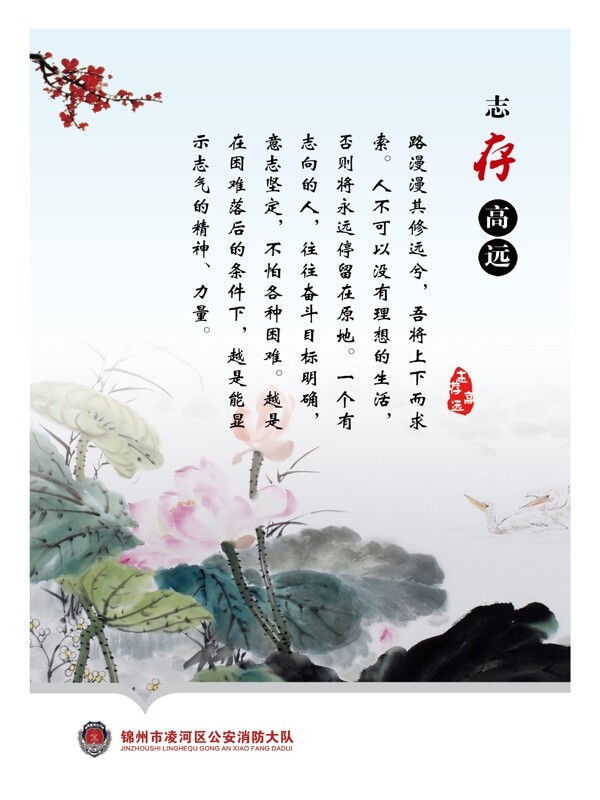 志存高远
路漫漫其修远兮，吾将上下而求
索。人不可以没有理想的生活，
否则将永远停留在原地。一个有
志向的人，往往奋斗目标明确，
意志坚定，不怕各种困难。越是
在困难落后的条件下，越是能显
示志气的精神、力量。
志存高远
锦州市凌河区公安消防大队
JINZHOUSHI LINGHEQU GONG AN XIAO FANG DADUI